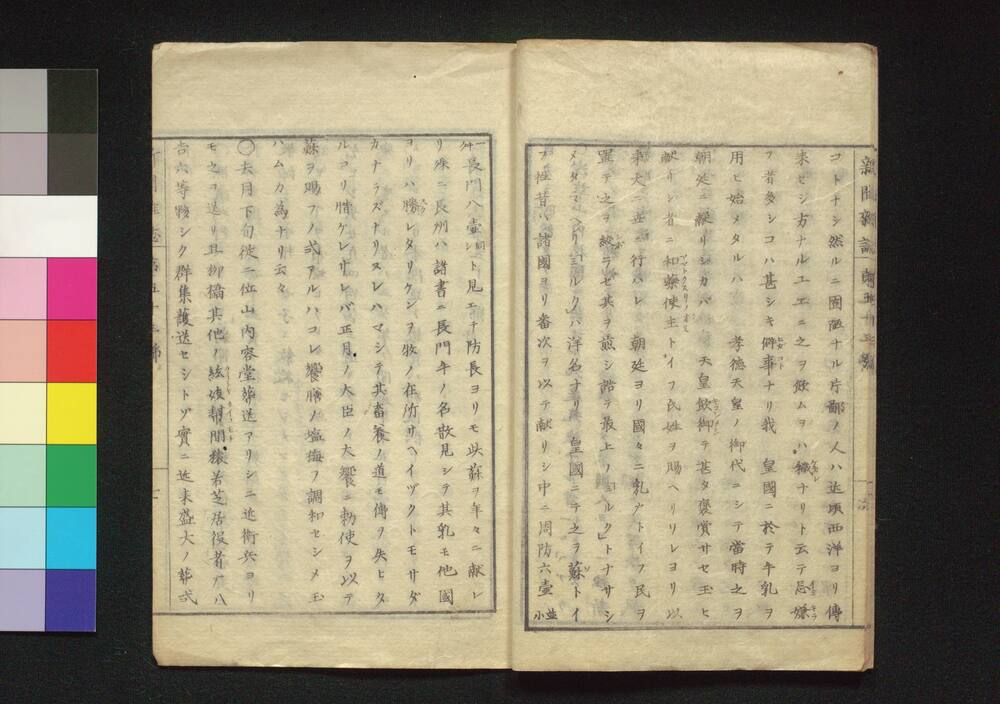 新聞雑誌
コトナシ然ルニ固陋ナル片鄙ノ人ハ近頃西洋ヨリ傳
来セシ方ナルユエニ之ヲ飲ムヲハ穢ナリト云テ忌嫌
フ者多シコハ甚シキ僻事ナリ我 皇國ニ於テ牛乳ヲ
用ヒ始メタルハ 孝徳天皇ノ御代ニシテ當時之ヲ
朝廷ニ献リシカバ 天皇飲御テ甚タ褒賞サセ玉ヒ
献リシ者ニ和藥使主トイフ民姓ヲ賜ヘリソレヨリ以
来大ニ世ニ行ハレ 朝廷ヨリ國々ニ乳戸トイフ民ヲ
置テ之ヲ絞ラセ其ヲ煎シ詰テ最上ノ「ミルク」トナサシ
メタマヘリ「ミルク」ハ洋名ナリ 皇國ニテ之ヲ蘇トイ
フ往昔ハ諸國ヨリ番次ヲ以テ献リシ中ニ周防六壺並小
一升長門八壺同シト見エテ防長ヨリモ此蘇ヲ年々ニ献レ
リ殊ニ長州ハ諸書ニ長門牛ノ名散見シテ其乳モ他國
ヨリハ勝レタリケンヲ牧ノ在所サヘイヅクトモサダ
カナラズナリヌレハマシテ其畜養ノ道モ傳ヲ失ヒタ
ルコソ惜ケレサレバ正月ノ大臣ノ大饗ニ勅使ヲ以テ
蘇ヲ賜フノ式アルハコレ饗膳ノ塩梅ヲ調和セシメ玉
ハムカ為ナリ云々
〇去月下旬従二位山内容堂葬送アリシニ近衛兵ヨリ
モ之ヲ送リ且柳橋其他ノ絃妓幇間猿若芝居役者ナハ
吉六等夥シク群集護送セシトゾ實ニ近来盛大ノ葬式